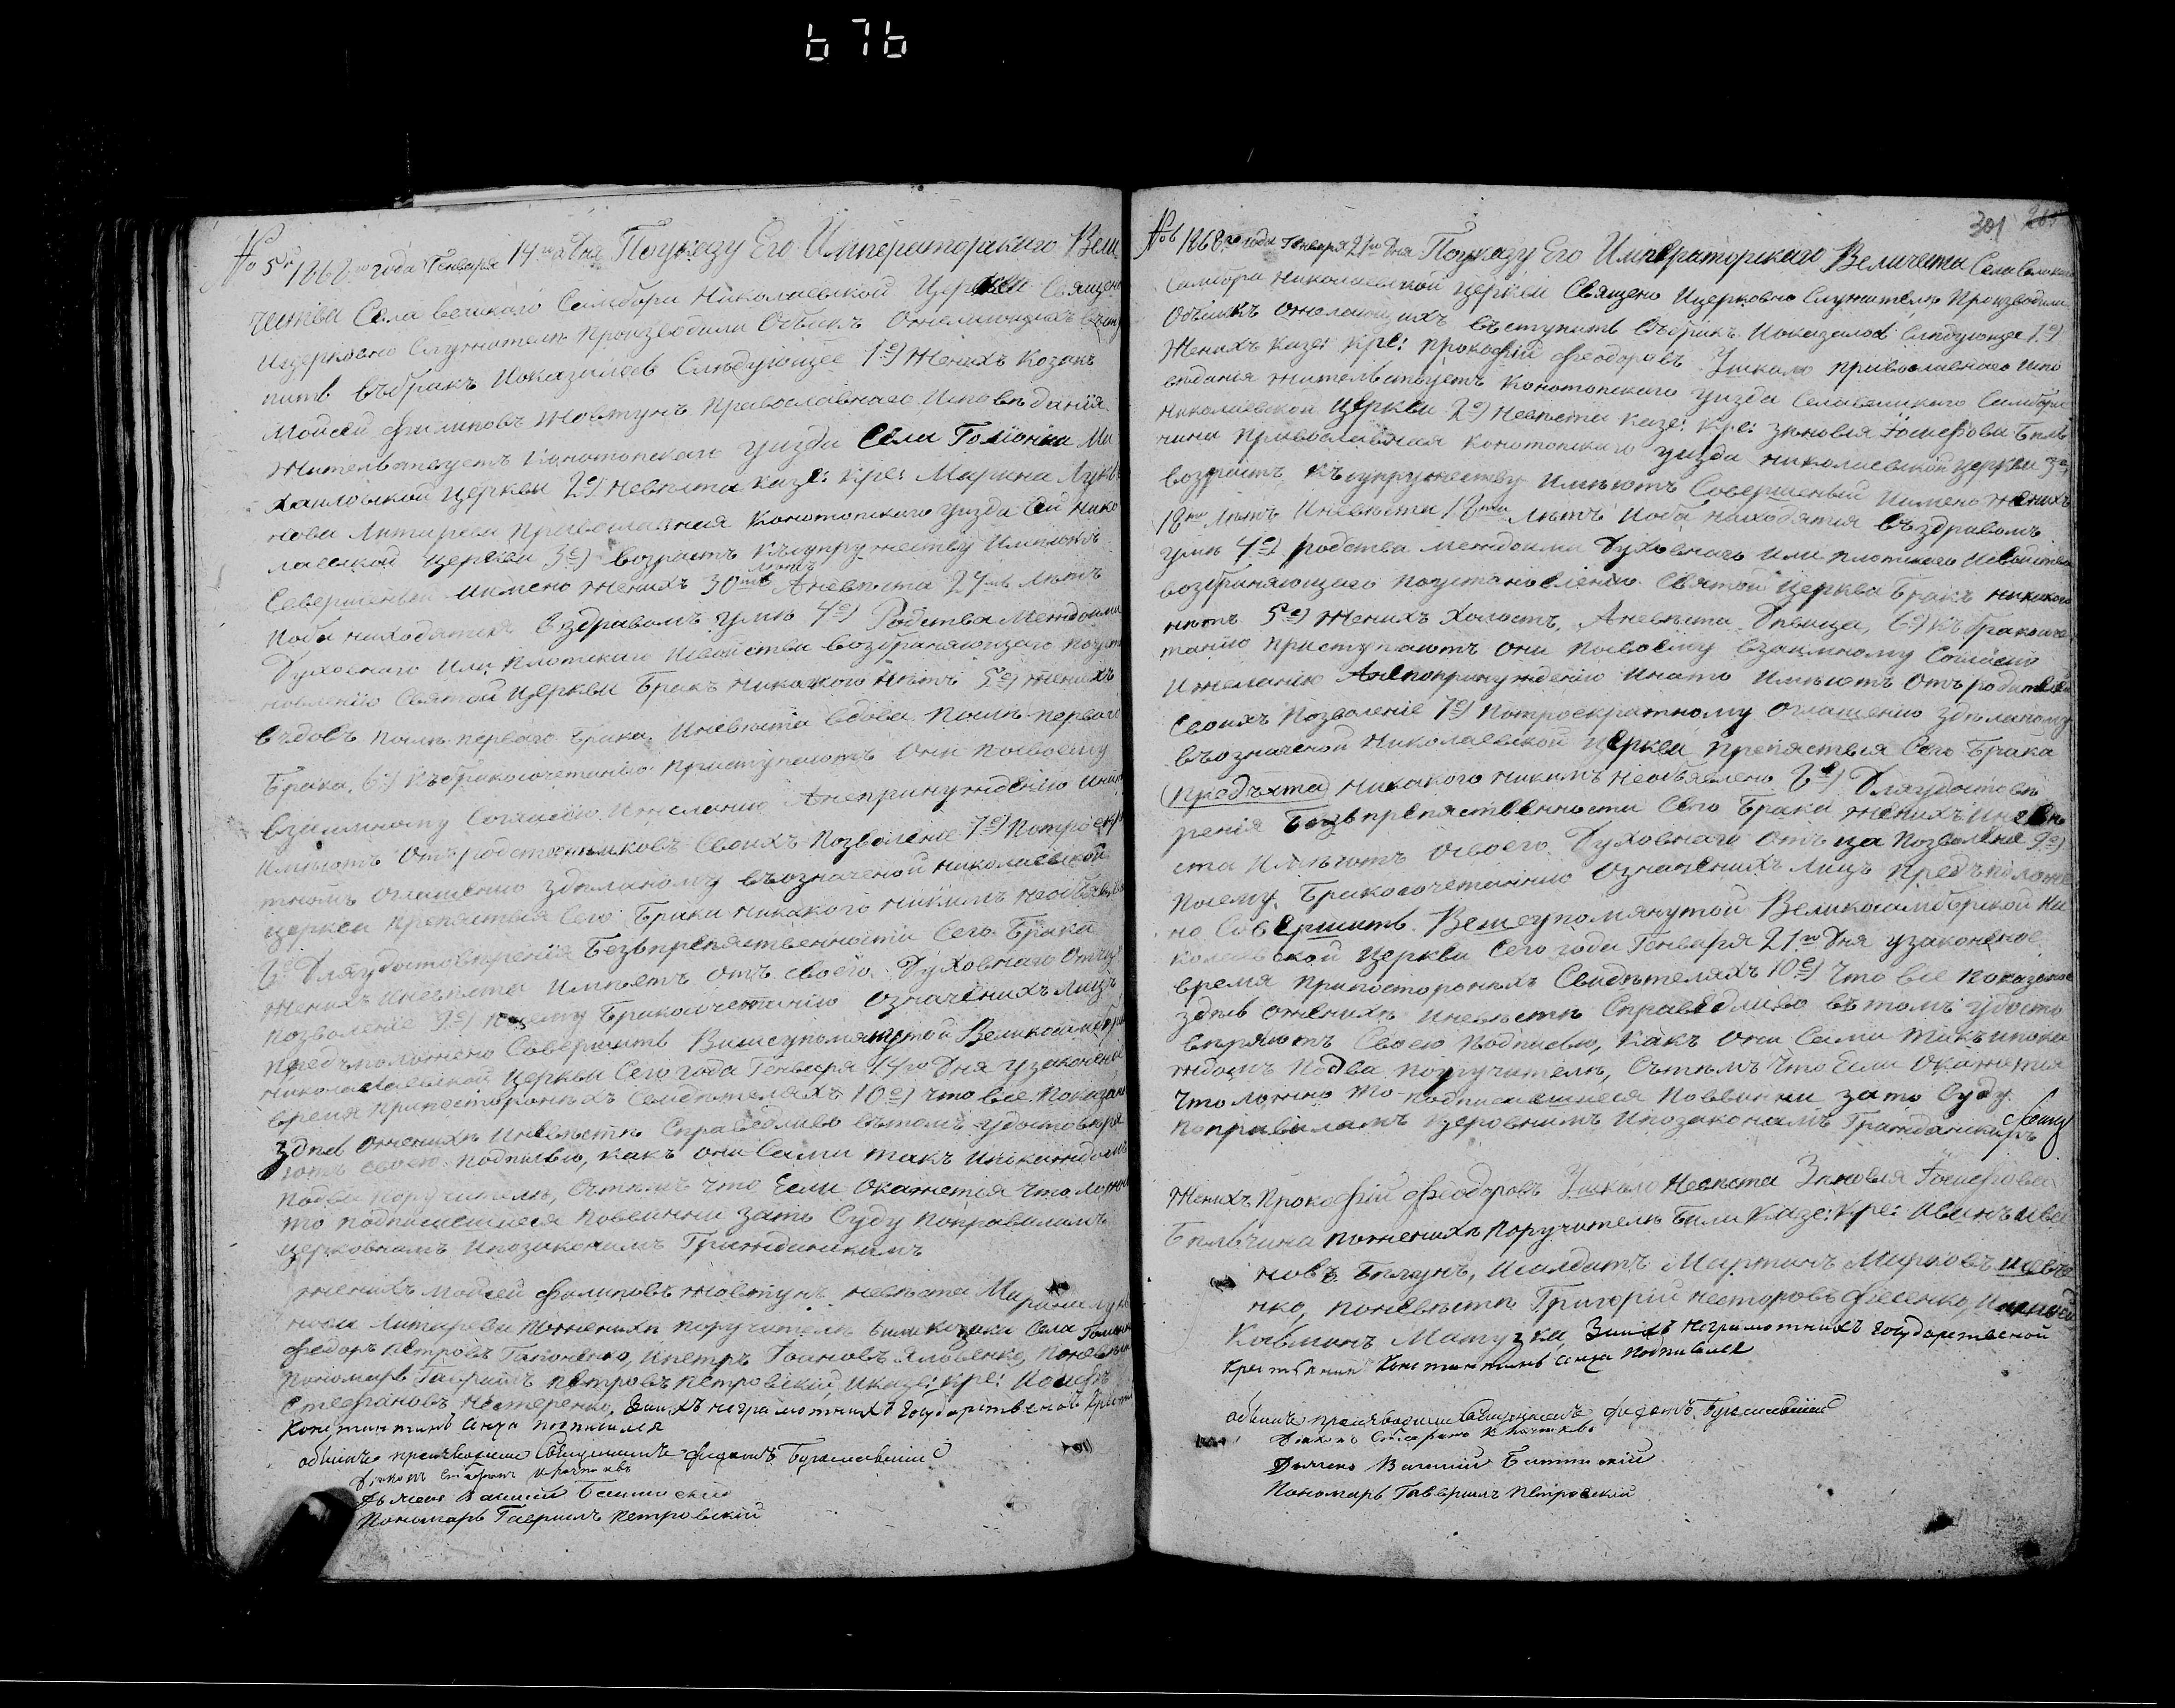 676
№ 5й 1868го года Генваря 14го дня Поуказу Его Императорскаго Вели
чества Села великаго Самбора Николаевской Церквы Священо
ицерковно Служители Производили Обыскъ Ожелающихъ всту
пить въбракъ Иоказалось Слѣдующее 1е) Женихъ Козакъ
Мойсей филиповъ Жовтунъ Православнаго Исповѣданія
Жительствуетъ Конотопскаго уизда Села Голіонки Ми
хаиловской Церквы 2е) Невѣста казе: кре: Марина Луки
нова Православная Конотопскаго уизда Сей Нико
лаевской церквы 3е) возрастъ късупружеству Имѣютъ
Совершеный имено жених 30ть лѣтъ Аневѣста 29ть лѣтъ
Иоба находятся вздравомъ умѣ 4е) Родства Междоими
Духовнаго Или плотскаго Исвойства возбраняющаго поуста
новленію Святой церквы Бракъ никакого нѣтъ 5е) Женихъ
вдовъ послѣ перваго брака Иневѣста вдова послѣ перваго
Брака, 6е) Къбракосочетанію приступаютъ Они посвоему
взаимному Согласію Ижеланію Анепринужденію Инато
Имѣютъ Отъродствениковъ Своихъ Позволеніе 7е) Потроекра
тному оглашению зделаному въозначеной Николаевской
церквы препятствія Сего Брака никакого никимъ необъявлено
8е Дляудостовѣренія Безъпрепятственности Сего Брака
Женихъ Иневѣста Имѣетъ Отъ своего Духовнаго Отца
позволеніе 9е) Посему Бракосочетанію означенихъ лицъ
предъположено Совершить Вишеупомянутой Великосамборской
Николаевской Церквы Сего года Генваря 14го Дня узаконеное
время припосторонихъ Свидѣтеляхъ 10е) что все Показаное
здесь Оженихѣ Иневѣстѣ Справедливо вътомъ удостовѣря
ютъ своею подписью, какъ они Сами такъ Ипокаждомъ
Подва поручители, Сътымъ что Если Окажется что ложно
то подписавшиеся Повинни зато Суду поправиламъ
церковнимъ Ипозаконамъ Гражданскимъ
женихъ Мойсей филиповъ Жовтунъ невѣста Марина Луки
нова поженихѣ поручители Били козаки Села Голионки
Федоръ Петровъ Ипетръ Іоановъ Яловенко, Поневѣстѣ
Пономарь Гавриилъ Петровъ Петровскій, Иказе: кре: Иосифъ
Стефановъ Нестеренко, Заихъ неграмотнихъ Государственой
Константинъ подписался
обыскъ производили Священникъ Федотъ Бугославскій
Дьяконъ Стефанъ
Дьячокъ Василий
Пономарь Гавриилъ Петровскій
301
№6 1868го года Генваря 21го дня Поуказу Его Императорскаго Величества Села великаго
Самбора Николаевской церквы Священо Ицерковно Служители Производили
Обыскъ Ожелающихъ въступить въбракъ Иоказалось Слѣдующее 1е)
Женихъ казе: кре: Прокофій Феодоровъ Православнаго Испо
вѣданія жительствуетъ Конотопскаго уизда Села великаго Самбора
Николаевской Церквы 2е) Невѣста казе: кре: Зѣновія Іосифова Бѣль
чина Православная Конотопскаго уизда Николаевской церквы 3е)
возрастъ късупружеству Имѣютъ Совершеный Иимено женихъ
18ть лѣтъ Иневѣста 18ть лѣтъ Иоба находятся въздравомъ
умѣ 4е) родства междоими Духовнаго Или плотскаго Исвойства
возбраняющаго поустановленію Святой Церквы Бракъ никакого
нѣтъ 5е) Женихъ Холостъ, Аневѣста Дѣвица, 6е) къ бракосоче
танію приступаютъ они посвоему взаимному Согласію
Ижеланію Анепопринужденію Инато Имѣютъ Отъ родителей
Своихъ Позволеніе 7е) Потроекратному Оглашению зделаному
въозначеной Николаевской Церквы препятствія Сего Брака
никакого никимъ необъявлено 8е) Дляудостовѣ
ренія Безъпрепятственности Сего Брака женихъ Иневѣ
ста Имѣютъ Освоего Духовнаго Отъца Позволение 9е)
Посему Бракосочетанию Означенихъ лицъ Предъположе
но Совершить Вешеупомянутой Великосамборской Ни
колаевской Церквы Сего года Генваря 21го Дня узаконеное
время припосторонихъ Свидѣтеляхъ 10е) Что все показаное
здесь оженихѣ Иневѣстѣ Справедливо вътомъ удосто
веряютъ Своею подписью, Какъ Они Сами такъ ипока
ждомъ Подва поручители, Сътымъ Что Если Окажется
Что ложно то подписавшиеся Повинни зато Суду
поправиламъ Церовнимъ Ипозаконамъ Гражданскимъ
Женихъ Прокофій Феодоровъ Невѣста Зѣновія Іосифова
Бѣльчина поженихѣ поручители Били казе: кре: Иванъ Ива
новъ Билунъ, Исалдатъ Мартинъ Марковъ Шевче
нко, поневѣстѣ Григорій Несторовъ Фесенко,
Заихъ неграмотнихъ Государственой
Крестянинъ Константинъ Подписался
обыскъ производили Священникъ Федотъ Бугославскій
Дьяконъ Стефанъ
Дьячокъ Василий
Пономарь Гавриилъ Петровскій